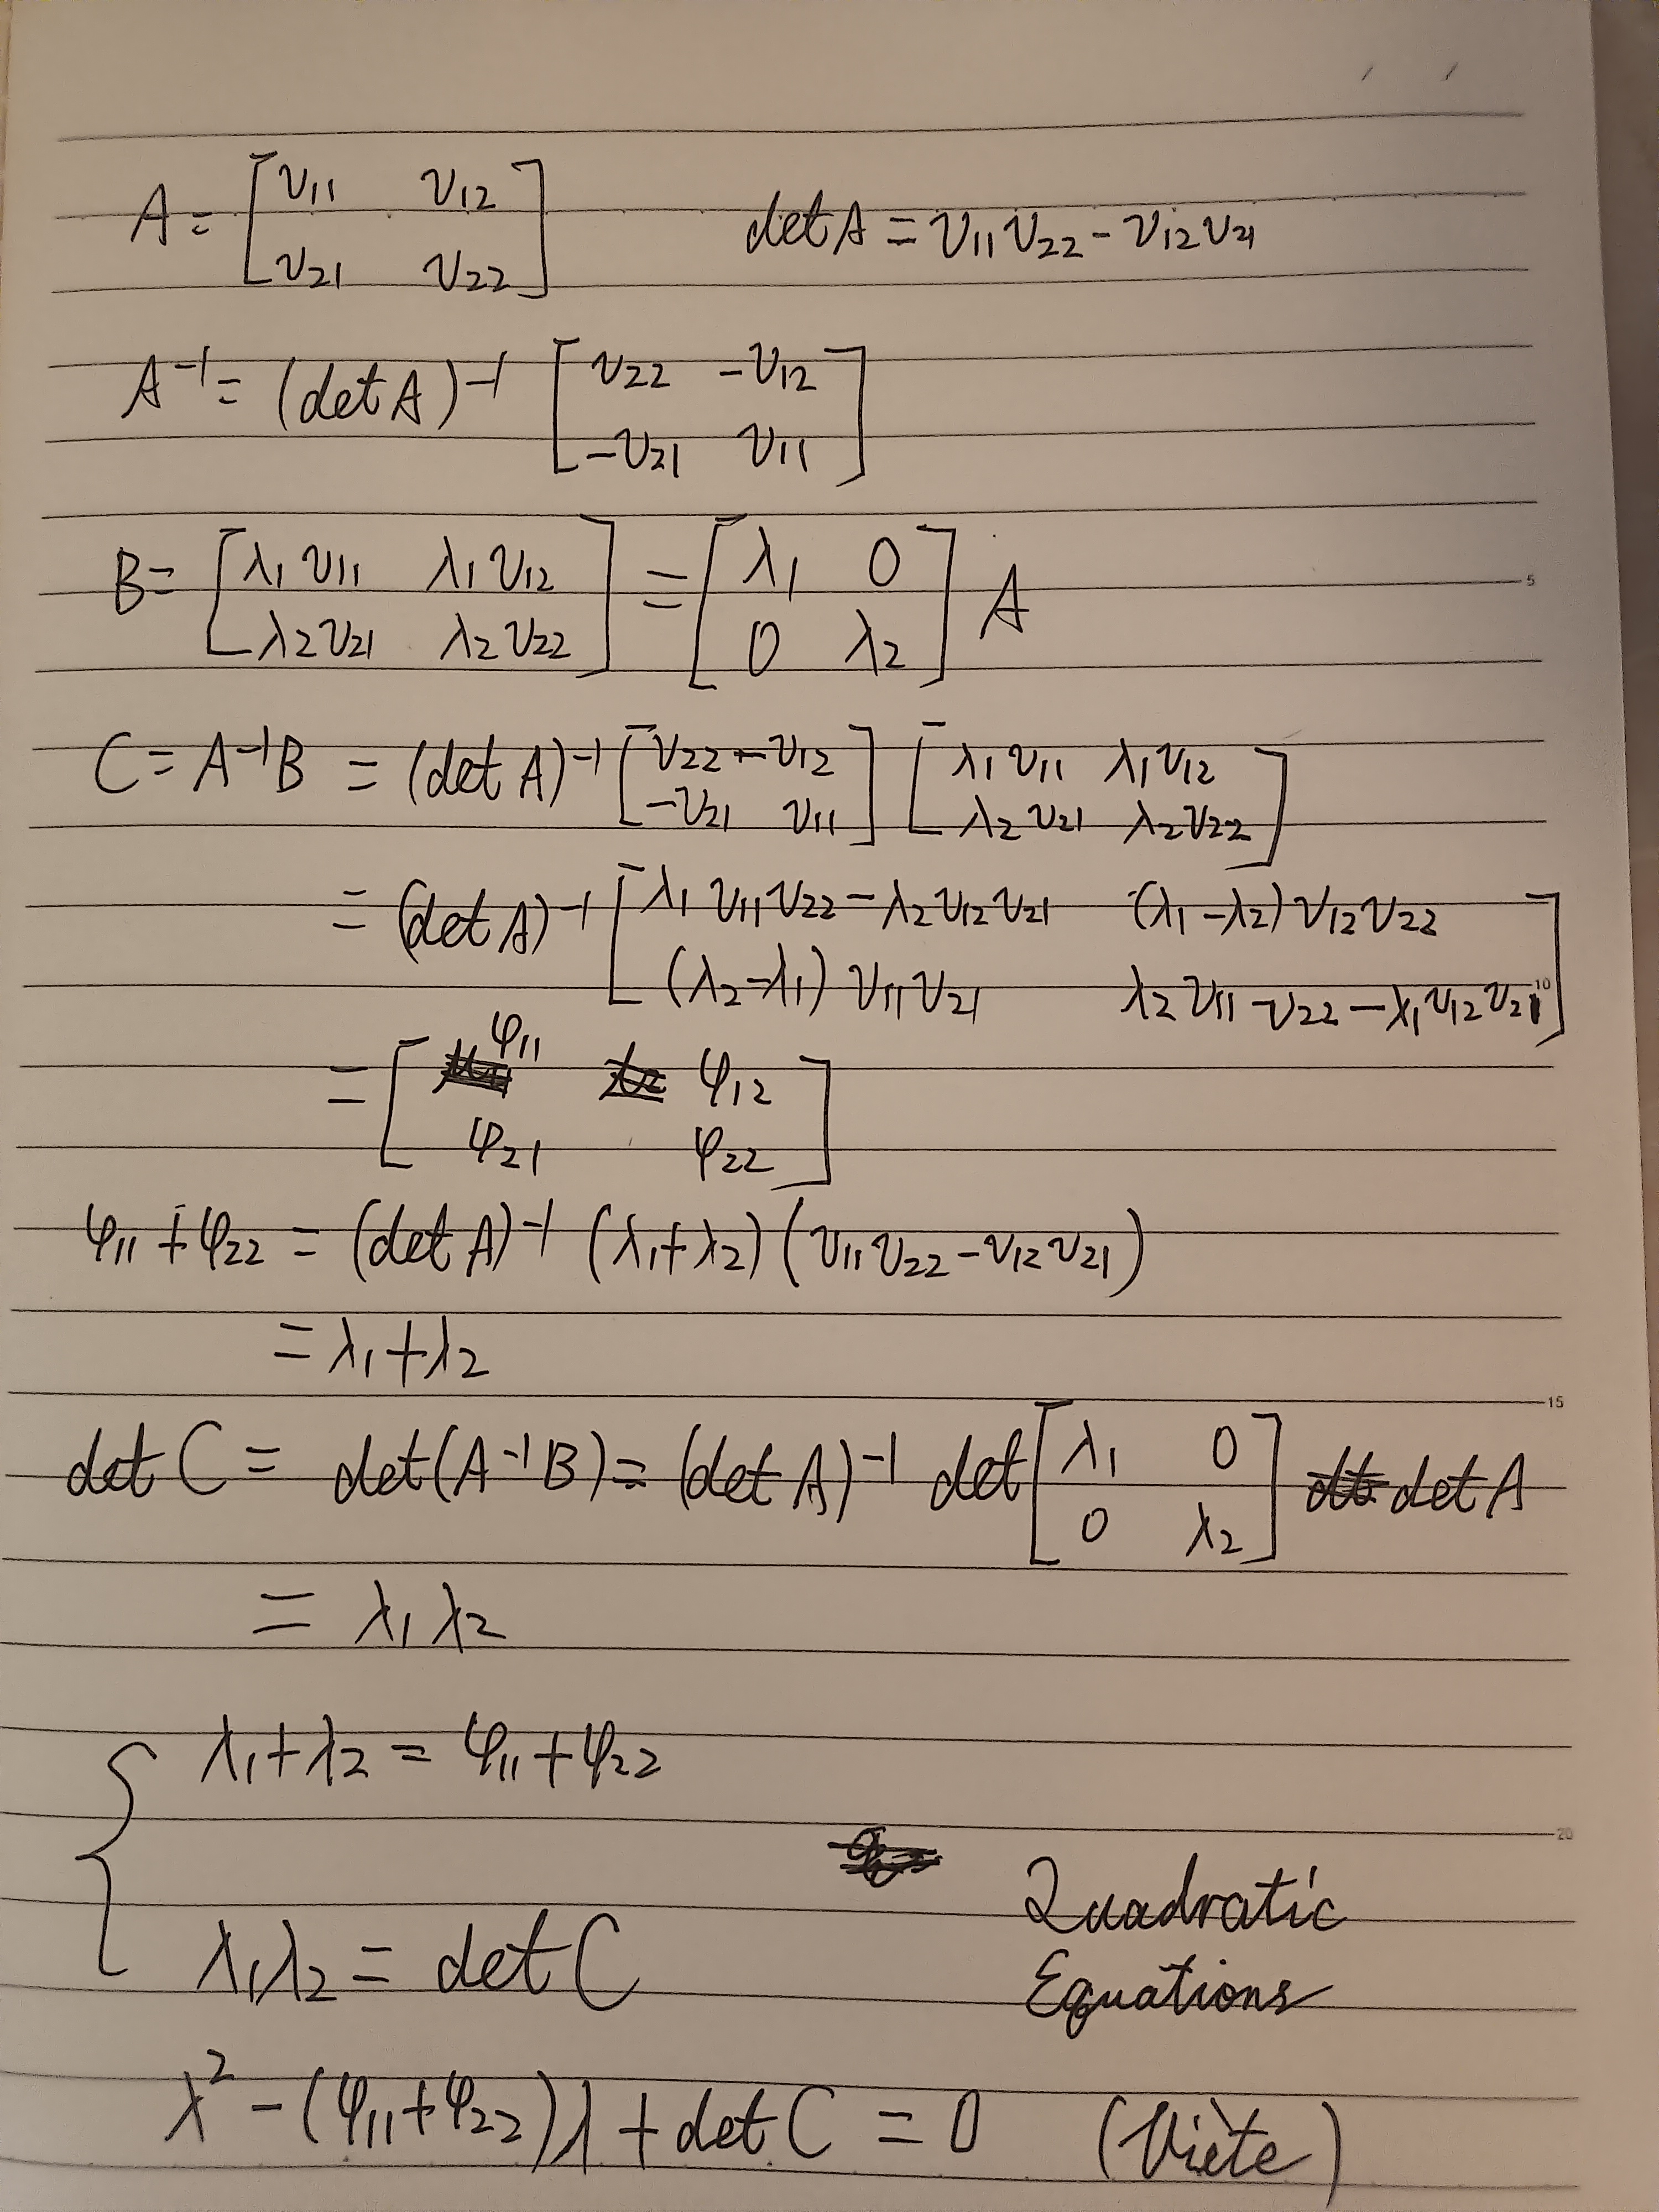 A = [v₁₁ v₁₂ ; v₂₁ v₂₂] det A = v₁₁v₂₂ - v₁₂v₂₁
A⁻¹ = (det A)⁻¹ [v₂₂ -v₁₂ ; -v₂₁ v₁₁]
B = [λ₁v₁₁ λ₁v₁₂ ; λ₂v₂₁ λ₂v₂₂] = [λ₁ 0 ; 0 λ₂] A
C = A⁻¹B = (det A)⁻¹ [v₂₂ -v₁₂ ; -v₂₁ v₁₁] [λ₁v₁₁ λ₁v₁₂ ; λ₂v₂₁ λ₂v₂₂]
= (det A)⁻¹ [λ₁v₁₁v₂₂ - λ₂v₁₂v₂₁ (λ₁-λ₂)v₁₂v₂₂ ; (λ₂-λ₁)v₁₁v₂₁ λ₂v₁₁v₂₂ - λ₁v₁₂v₂₁]
= [φ₁₁ φ₁₂ ; φ₂₁ φ₂₂]
φ₁₁ + φ₂₂ = (det A)⁻¹ (λ₁+λ₂) (v₁₁v₂₂ - v₁₂v₂₁)
= λ₁+λ₂
det C = det(A⁻¹B) = (det A)⁻¹ det [λ₁ 0 ; 0 λ₂] det A
= λ₁λ₂
{ λ₁+λ₂ = φ₁₁+φ₂₂
λ₁λ₂ = det C
Quadratic
Equations
λ² - (φ₁₁+φ₂₂)λ + det C = 0 (Viète)
5
10
15
20